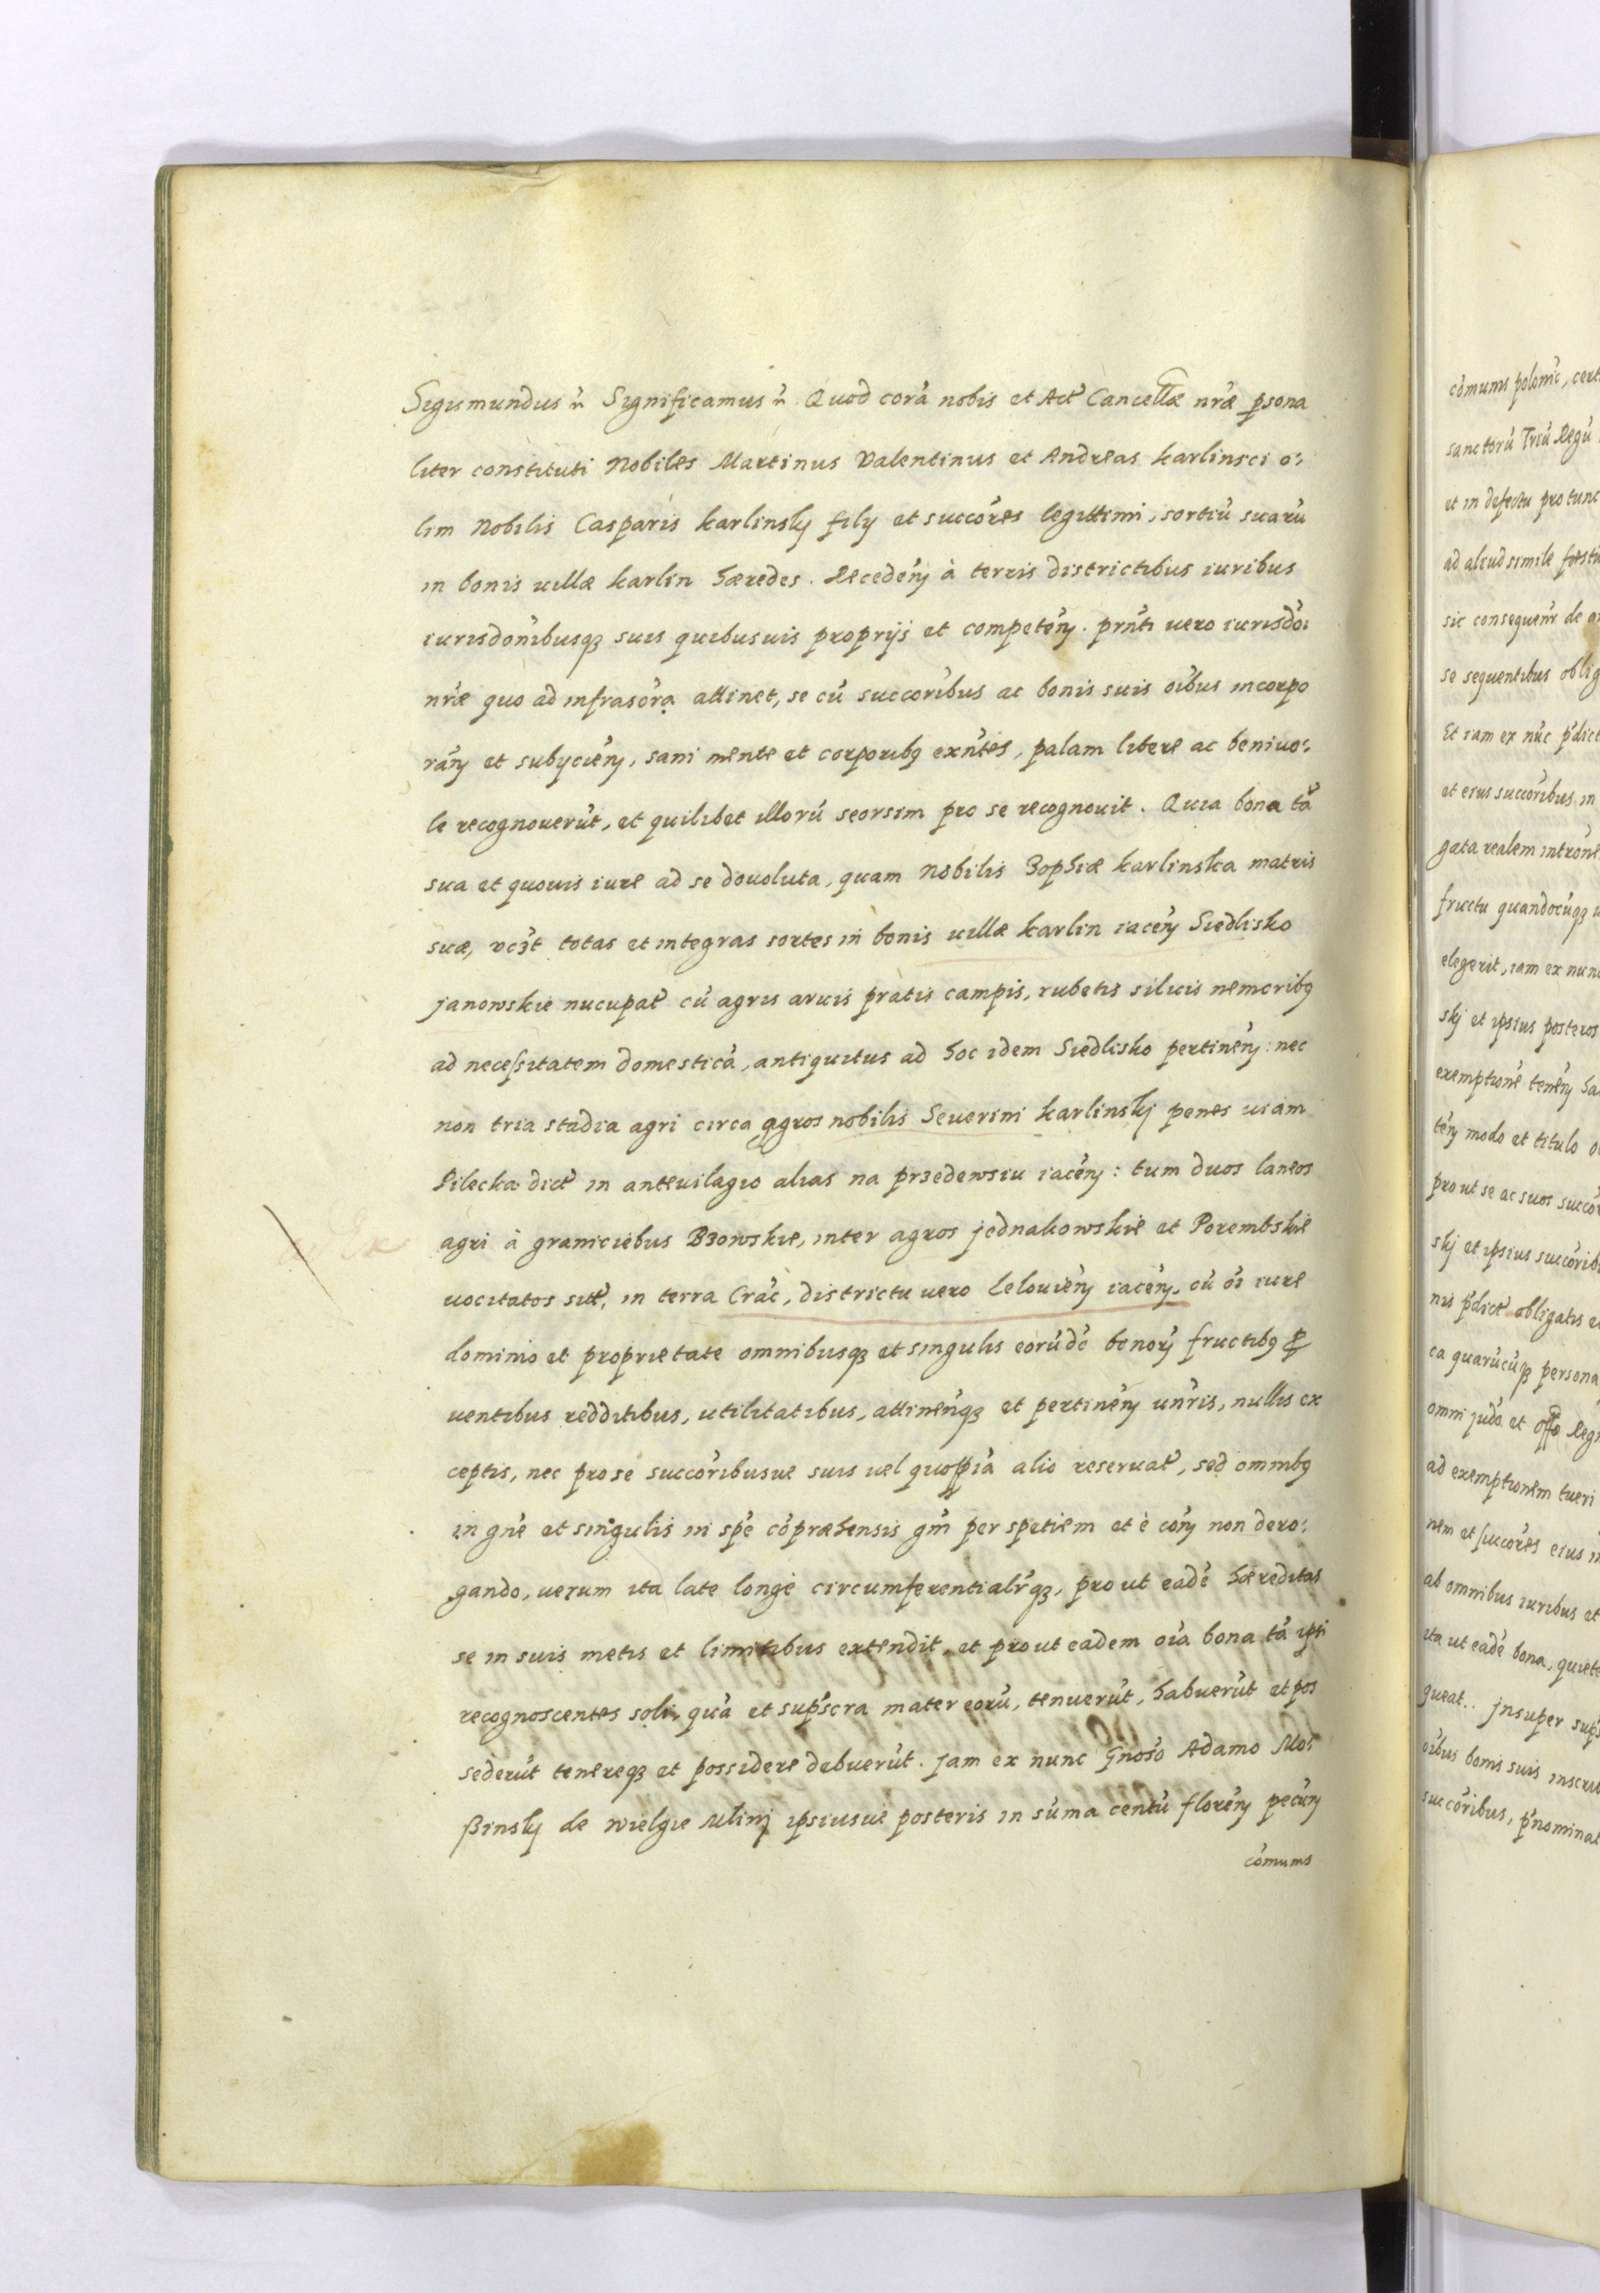 Sigismundus ĩ Significamus ĩ Quod corã nobis et Act̃ Cancellæ nr̃æ psona
liter constituti Nobiles Martinus Valentinus et Andreas Karlinsci o:
lim Nobilis Casparis Karlinskj filÿ et succõres legittimi, sortiũ suarũ
in bonis uillæ Karlin hæredes. Recedeñ à terris districtibus iuribus
iurisdoñibusq3 suis quibusuis proprijs et competeñ. prñti uero iurisdõi
nr̃æ quo ad infrascr̃a attinet, se cũ succoribus ac bonis suis oĩbus incorpo
rañ et subÿcieñ, sani mente et corporibq exñtes, palam libere ac beniuo:
le recognouerũt, et quilibet illorũ seorsim pro se recognouit. Quia bona tã
sua et quouis iure ad se deuoluta, quam Nobilis Zophiæ Karlinska matris
suæ, vc3t totas et integras sortes in bonis uillæ Karlin iaceñ Siedlisko
Janowskie nucupat̃ cũ agris aruis pratis campis, rubetis siluis nemoribq
ad necessitatem domesticã, antiquitus ad hoc idem Siedlisko pertineñ: nec
non tria stadia agri circa agros nobilis Seuerini Karlinskj penes uiam
Pilecka dict̃ in anteuilagio alias na przedewsiu iaceñ: tum duos laneos
agri à graniciebus Bzowskie, inter agros Jednakowskie et Porembskie
uocitatos sit̃, in terra Crac̃, districtu uero Lelouieñ iaceñ, cũ oĩ iure
dominio et proprietate omnibusq3 et singulis eorũdẽ bonorũ fructibq p
uentibus redditibus, utilitatibus, attineñq3 et pertineñ uñris, nullis ex
ceptis, nec pro se succoribusue suis uel quopiã alio reseruat̃, sed omnibq
in gñe et singulis in spẽ cõpræhensis gñi per spetiem et è coñ non dero:
gando, uerum ita late longè circumferentialr̃q3, prout eadẽ hæreditas
se in suis metis et limitibus extendit, et prout eadem oĩa bona tã ipsi
recognoscentes soli, quã et supscra mater eorũ, tenuerũt, habuerũt et pos
sederũt tenereq3 et possidere debuerũt. Jam ex nunc Gnoso Adamo Mo:
ßinskj de Wielgie Mlinj ipsiusue posteris in sũma centũ floreñ pecuñ
cõmunis
cõmunis poloniĉ, cert
sanctorũ Triũ Regũ
et in defectu pro tunc
ad aliud simile festũ
sic consequeñr de
se sequentibus oblig
Et iam ex nũc pdict
et eius succoribus in
gata realem intron̄e
fructu quandocũq3
elegerit, iam ex nunc
skj et ipsius posteros
exemptionẽ teneñ ha
teñ modo et titulo
prout se ac suos succor
skj et ipsius succoribq
nis pdict̃ obligatis
ca quarũcũq3 persona
omni judo et offo Regni
ad exemptionem tueri
nem et succores eius
ab omnibus iuribus et
ita ut eadẽ bona, quiete
queat. Insuper sup
oĩbus bonis suis inscru
succoribus, pnominat